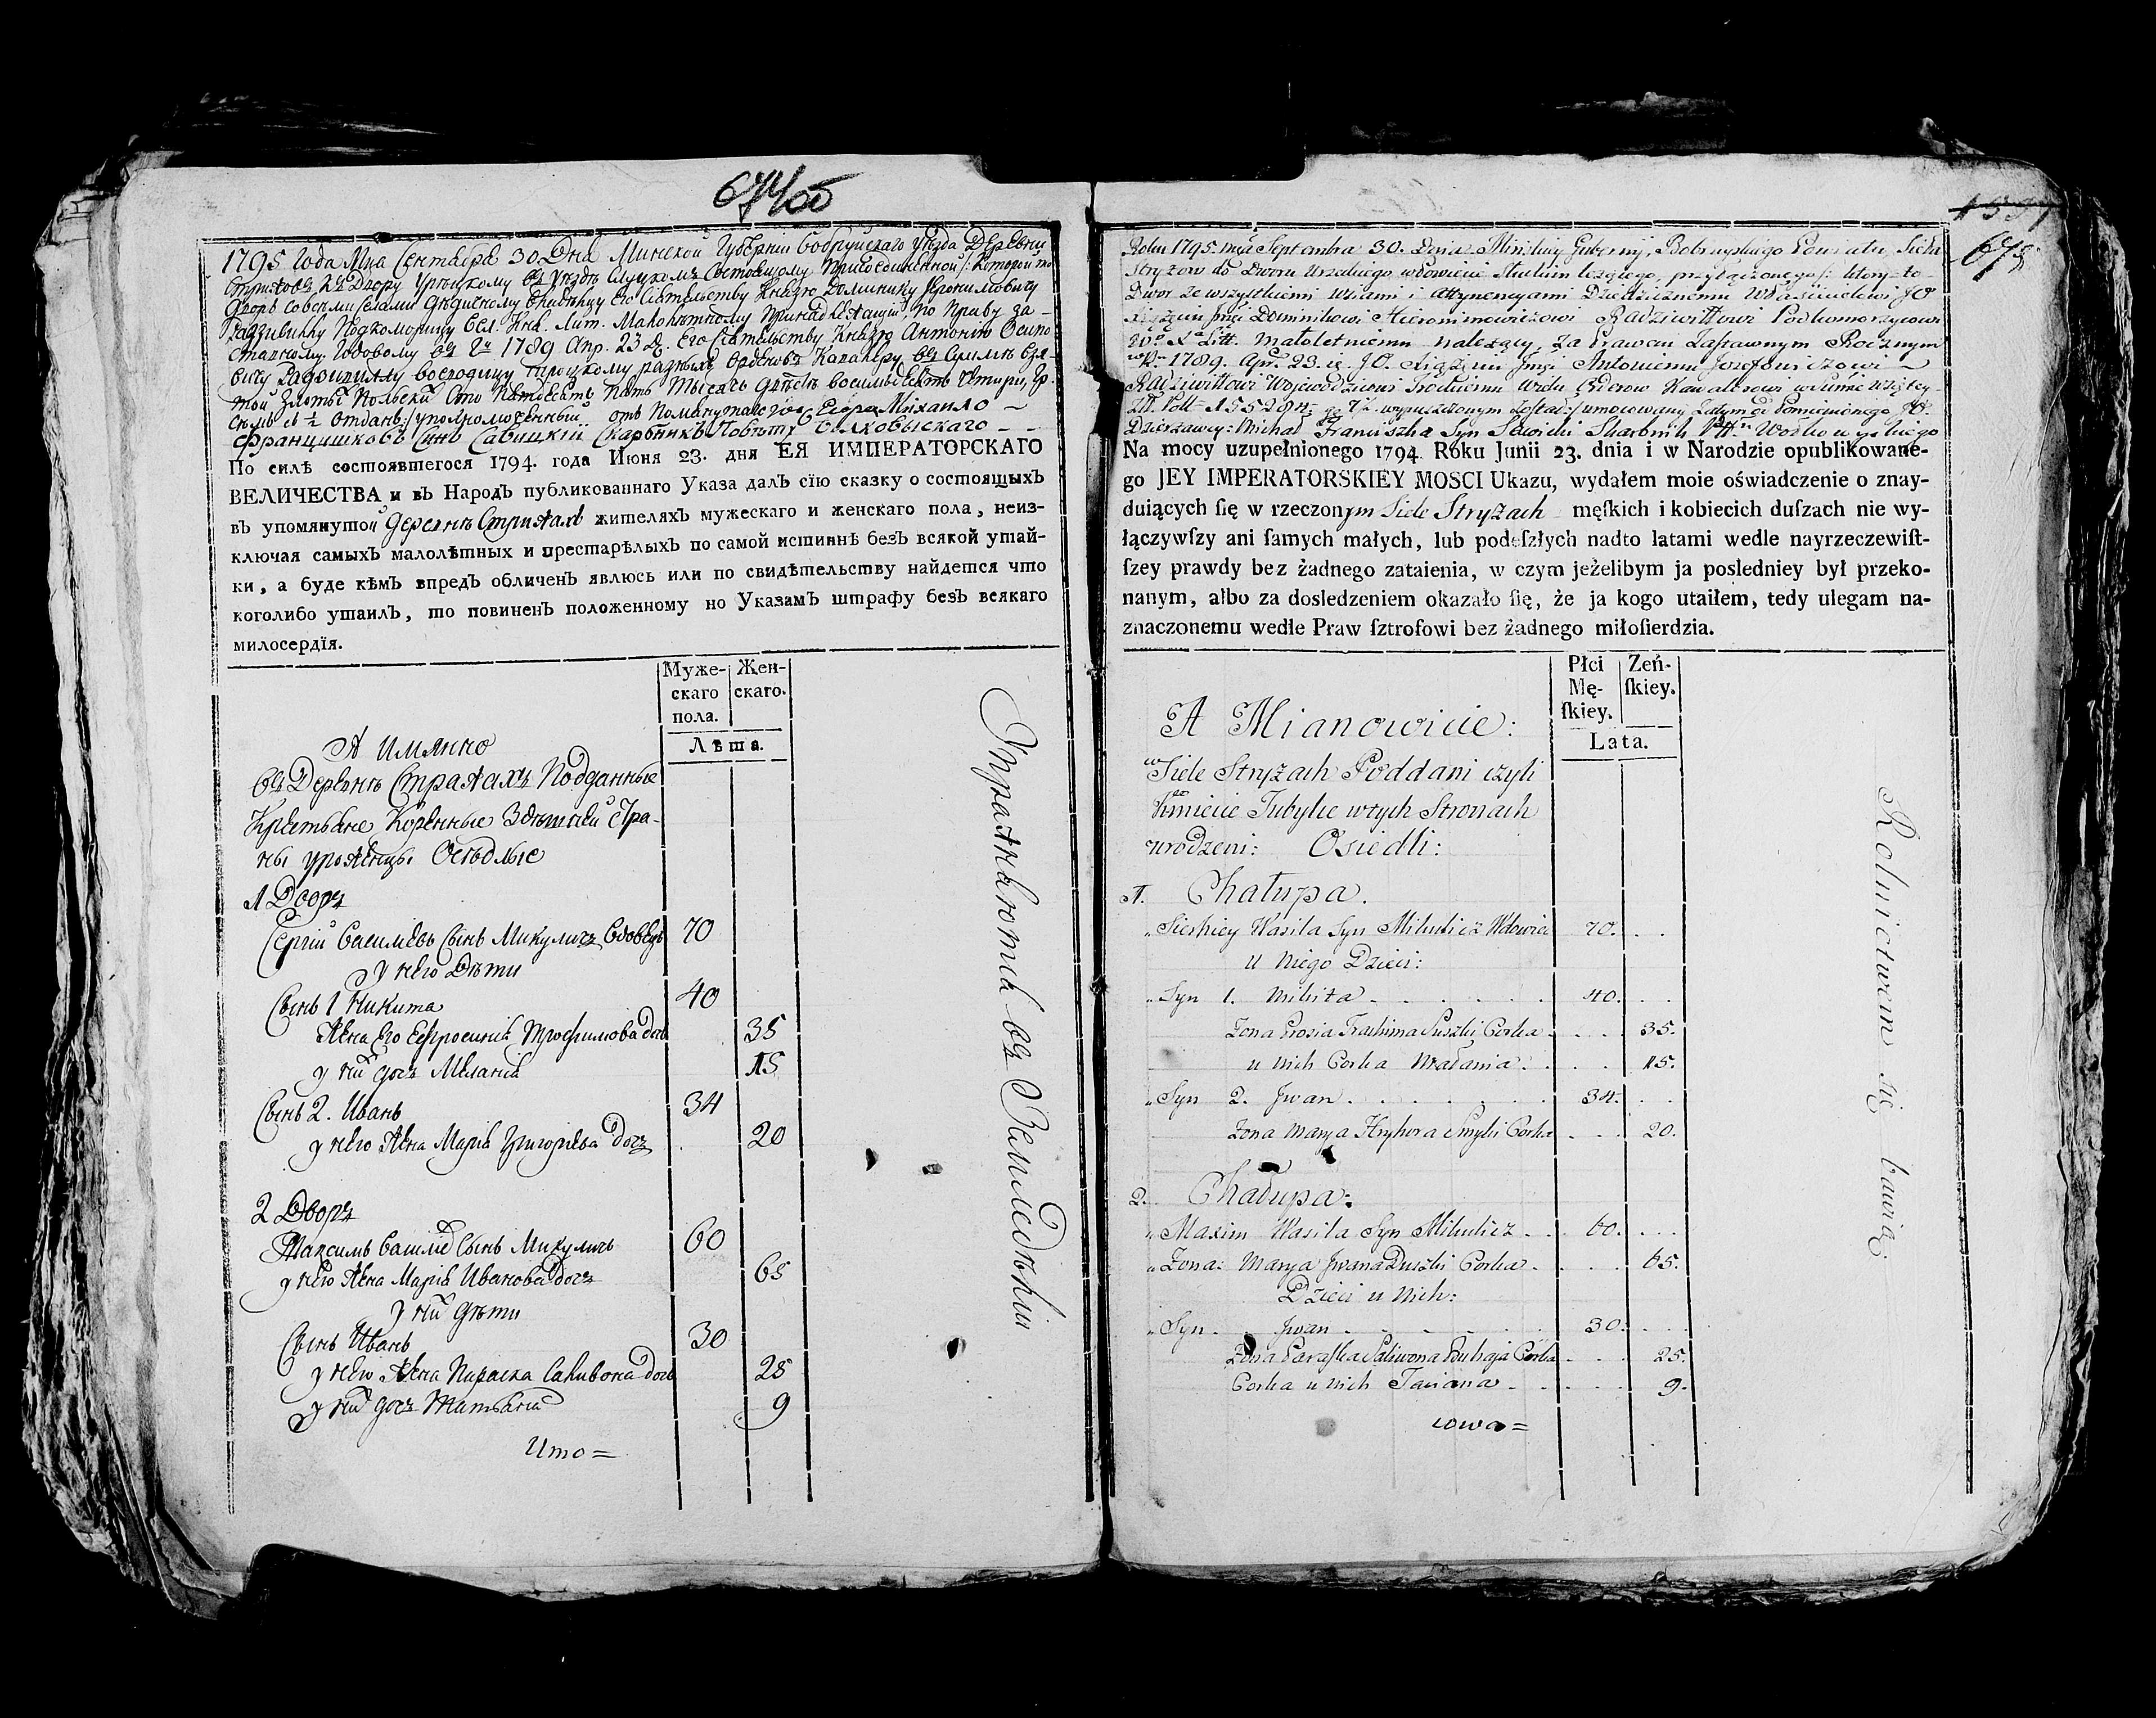 674об
1795 Года Мца Сентября 30 Дня Минской Губернии Бобруйскаго уезда Деревни
Стрижовъ къ Двору Урецкому въ уездѣ Слуцкомъ Состоящому Присоединенной /: Которой то
Дворъ Совсеми Селами Дѣдичному Его Сиятельству Князю Доминику Иеронимовичу
Радзивилу Подкоморицу Вел. Кня. Лит. Малолѣтному Принадлежащий, по Праву за-
ставному Годовому въ 1789 Апр. 23 Д. Его Сиятельству Князю Антонию Осипо
вичу Радзивиллу Воеводицу Троцкому разныхъ Орденовъ Кавалеру въ Суммѣ взя-
той Злотый Польский Сто Пятдесятъ Пять Тысячъ Двѣстѣ восимьдесятъ Четыри, Гр.
Семь и ½ Отданъ :/ уполномоченный отъ Помянутаго Михайло ~
Францишковъ Сынъ Савицкий Скарбникъ Повѣту Волковыскаго - -
По силѣ состоявшегося 1794. года Июня 23. дня ЕЯ ИМПЕРАТОРСКАГО
ВЕЛИЧЕСТВА и въ Народъ публикованнаго Указа далъ сїю сказку о состоящыхъ
въ упомянутой Деревнѣ Стрижахъ жителяхъ мужескаго и женскаго пола, неиз-
ключая самыхъ малолѣтныхъ и престарѣлыхъ по самой истиннѣ безъ всякой утай-
ки, а буде кѣмъ впредъ обличенъ явлюсь или по свидѣтельству найдется что
коголибо утаилъ, то повиненъ положенному по Указамъ штрафу безъ всякаго
милосердїя.
Муже-
скаго
пола.
Жен-
скаго.
Лѣта.
А имянно
Въ Деревнѣ Стрижахъ Подданные
Крестьяне Коренные Здѣшней Стра-
ны уроженцы Оседлые
1 Дворъ
Сергий Василиевъ Сынъ Микуличъ Вдовецъ 70
у него Дѣти
Сынъ 1 Никита 40
Жена Его Ефросиния Трофимова дочь 35
у них дочь Мелания 15
Сынъ 2. Иванъ 34
у него Жена Мария Григориева дочь 20
2 Дворъ
Максимъ Василиевъ Сынъ Микуличъ 60
у него Жена Мария Иванова дочь 65
у них дѣти
Сынъ Иванъ 30
у него Жена Параска Саливона дочь 25
у них дочь Татьяна 9
Ито =
Упражняются въ Земледелии
1551
675
Roku 1795 mca Septembra 30. Dnia Minskiey Gubernij, Bobruyskiego Powiatu, Sioła
Stryżow do Dworu Urzeckiego w Powiecie Słuckim leżącego, przyłączonego /: Ktory-to-
Dwor ze wszystkiemi wsiami i Attynencyami Dziedzicznemu Właścicielowi JO
Xiążęciu Jmci Dominikowi Hieronimowiczowi Radziwiłłowi Podkomorzycowi
Wo X Litt. Małoletniemu należący, za Prawem Zastawnym Rocznym
w R. 1789. Apr. 23. JO. Xiążęciu Jmci Antoniemu Jozefowiczowi -
Radziwiłłowi Woiewodzicowi Trockiemu wielu Orderow Kawalerowi w summie wziętey
Zł. Pol. 155284. gr 7½ wypuszczonym został :/ umocowany Zatym od Pomienionego JO.
Dzierżawcy: Michał Franciszka Syn Sawicki Skarbnik Ptt. Wołkowyskiego
Na mocy uzupełnionego 1794 Roku Junii 23. dnia i w Narodzie opublikowane-
go JEY IMPERATORSKIEY MOSCI Ukazu, wydałem moie oświadczenie o znay-
duiących ſię w rzeczonym Siele Stryżach męſkich i kobiecich duſzach nie wy-
łączywſzy ani ſamych małych, lub podeſzłych nadto latami wedle nayrzeczewiſt-
ſzey prawdy bez żadnego zataienia, w czym jeżelibym ja posledniey był przeko-
nanym, albo za dosledzeniem okazało ſię, że ja kogo utaiłem, tedy ulegam na-
znaczonemu wedle Praw ſztrofowi bez żadnego miłoſierdzia.
Płci
Mę-
ſkiey.
Zeń-
ſkiey.
Lata.
A Mianowicie:
w Siele Stryżach Poddani czyli
Kmiecie Tubylce w tych Stronach
urodzeni: Osiedli:
1. Chałupa.
„ Sierhiey Wasila Syn Mikulicz Wdowiec 70.
u niego Dzieci:
„ Syn 1. Mikita 40.
Zona Prosia Trachima Puszki Corka 35.
u nich Corka Małania 15.
„ Syn 2. Jwan 34.
Zona Marya Hryhora Smylii Corka 20.
2. Chałupa:
„ Maxim Wasila Syn Mikulicz 60.
„ Zona: Marya Jwana Duszki Corka 65.
Dzieci u nich:
„ Syn Jwan 30.
Zona Paraska Saliwona Buhaja Corka 25.
Corka u nich Taciana 9.
Rolnictwem się bawią